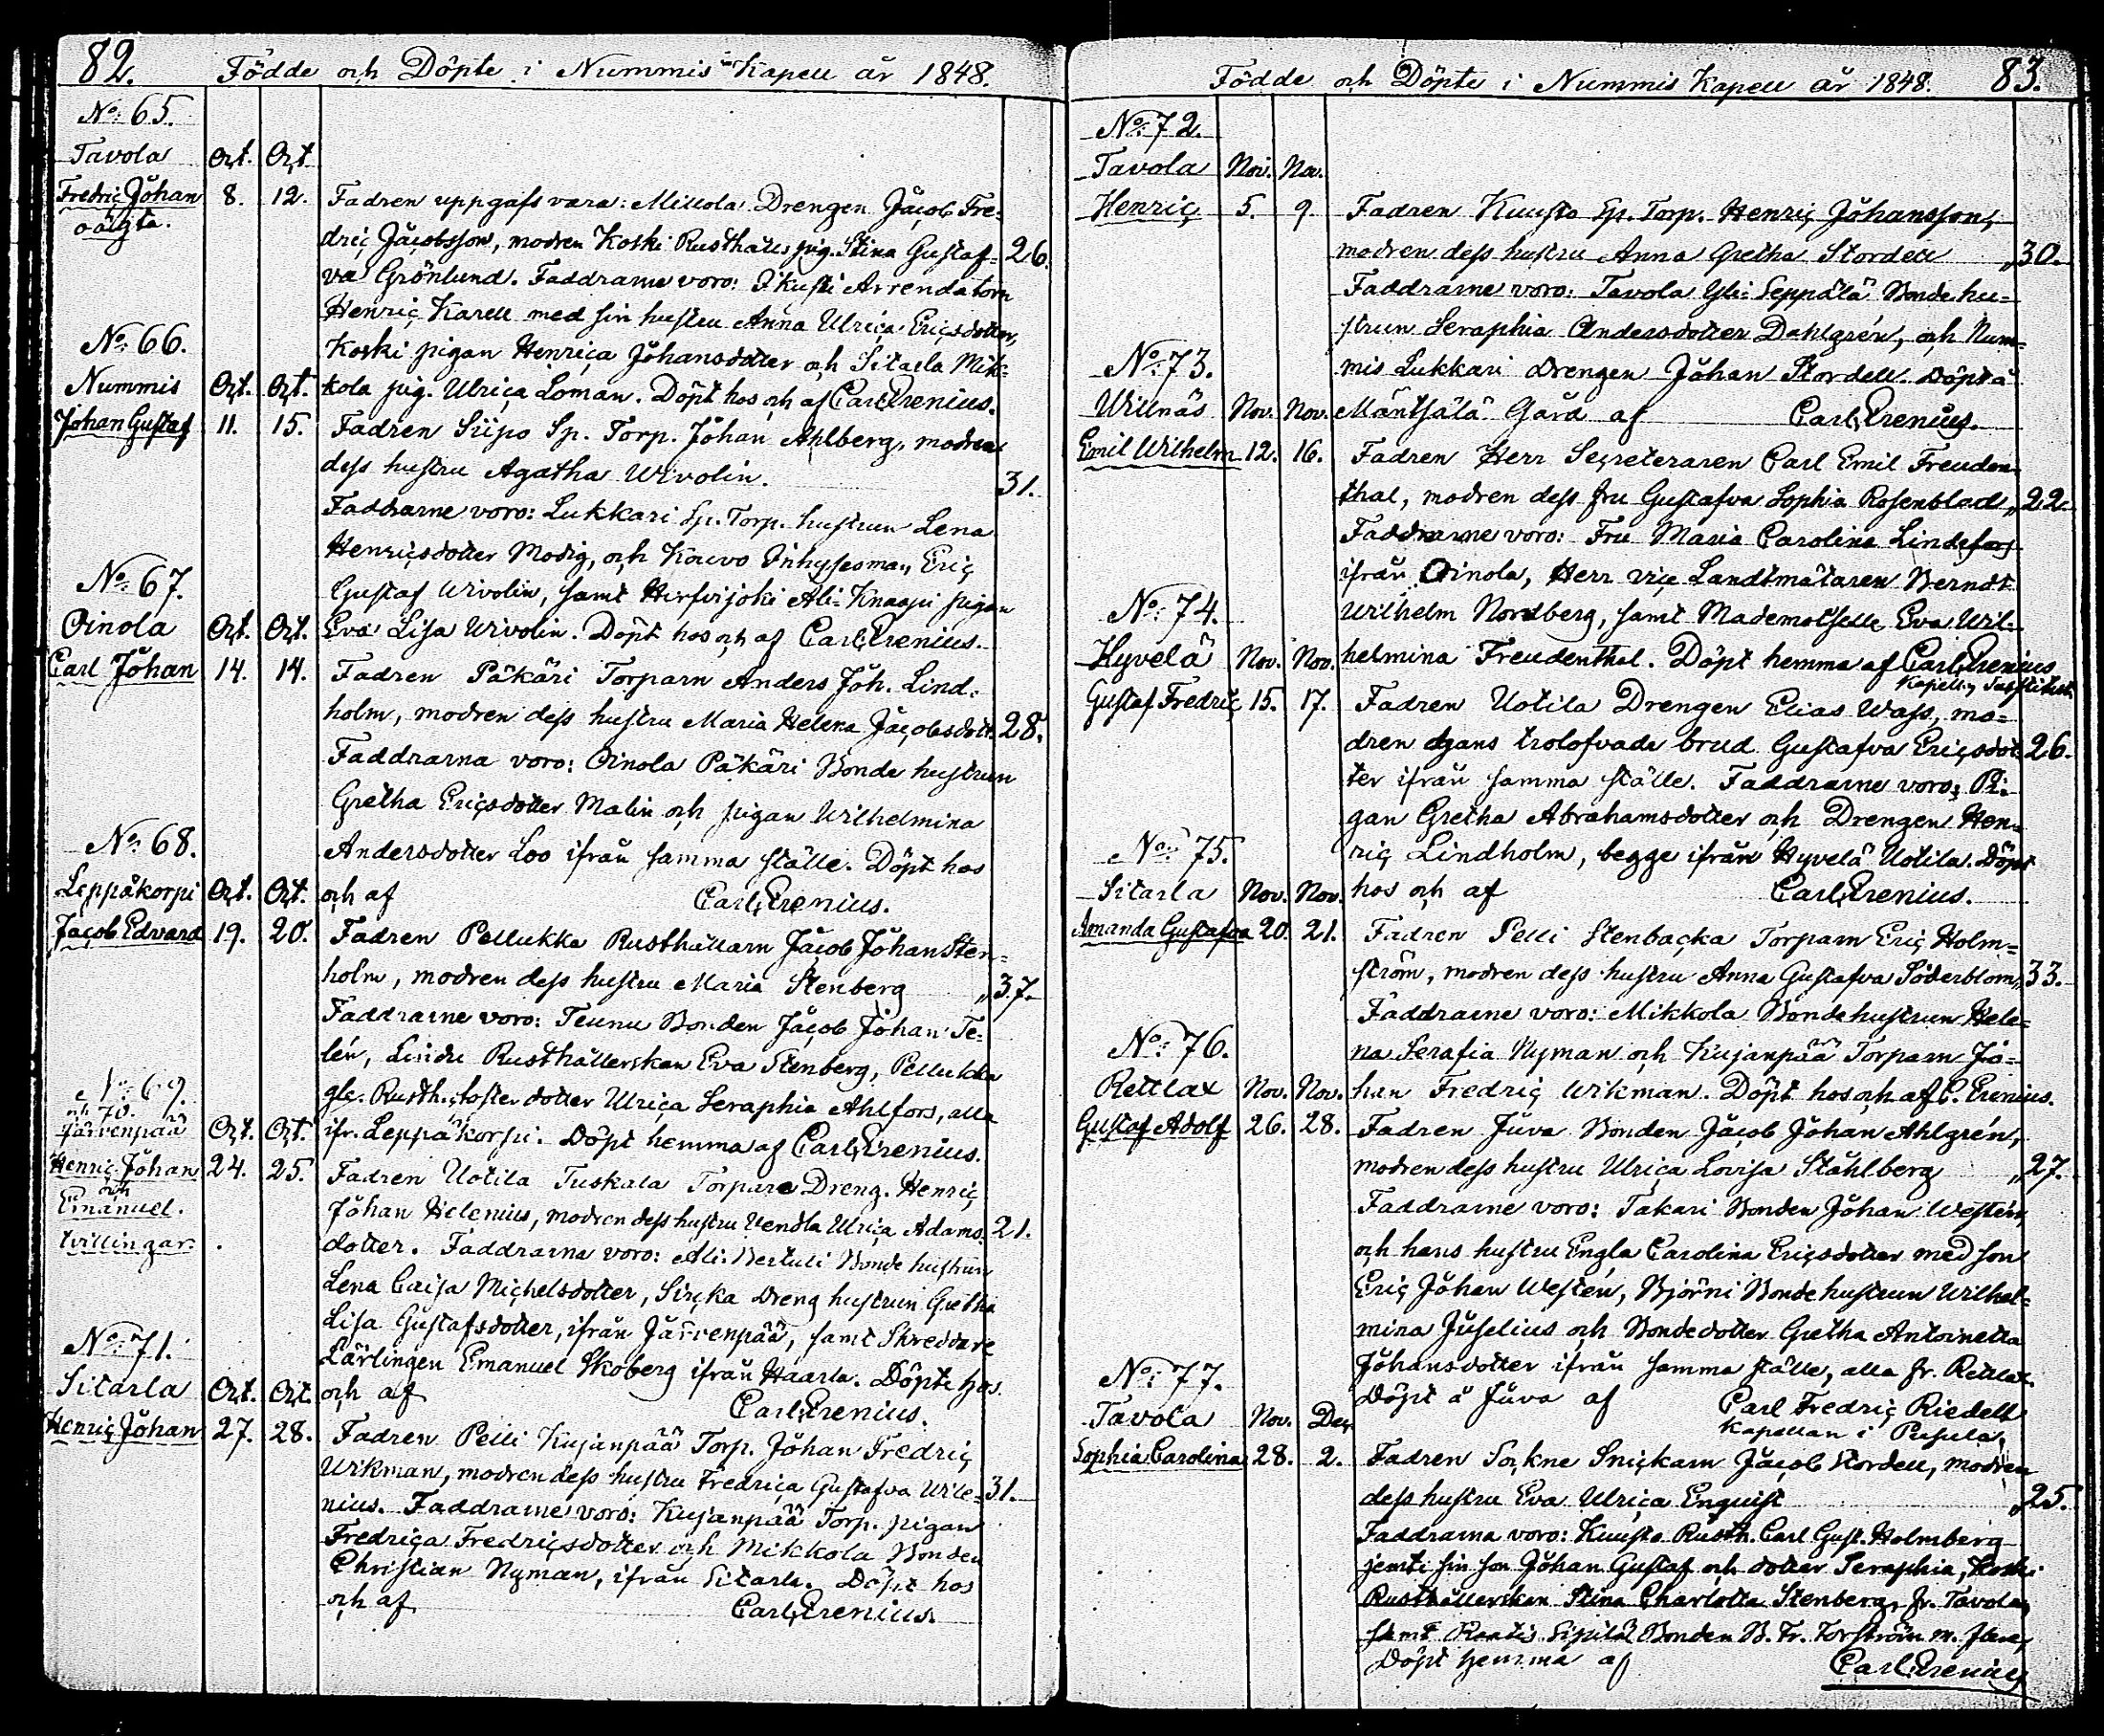 82.
Födde och Döpte i Nummis Kapell år 1848.
No: 65.
Tavola Oct. Oct.
Fredric Johan 8. 12. Fadren uppgafs vara: Mikola Drengen Jacob Fre=
oäkta.
dric Jacobsson, modren Koski Rusthålls pig. Stina Gustaf= 26.
va Grönlund. Faddrarne voro: Ikusti Arrendatorn
Henric Karell med sin hustru Anna Ulrica Ericsdotter,
No: 66.
Koski pigan Henrica Johansdotter och Sitarla Mik=
Nummis Oct. Oct. kola pig. Ulrica Loman. Döpt hos och af Carl Erenius.
Johan Gustaf 11. 15. Fadren Siipo Sp. Torp. Johan Ahlberg, modren
dess hustru Agatha Wivolin. 31.
Faddrarne voro: Lukkari Sp. Torp. hustrun Lena
Henricsdotter Modig, och Kaivo Inhysesman Eric
No: 67.
Gustaf Wivolin, samt Hirsijoki Ali=Knaapi pigan
Oinola Oct. Oct. Eva Lisa Wivolin. Döpt hos och af Carl Erenius.
Carl Johan 14. 14. Fadren Päkäri Torparn Anders Joh. Lind=
holm, modren dess hustru Maria Helena Jacobsdott. 28.
Faddrarna voro: Oinola Päkäri Bonde hustrun
Gretha Ericsdotter Malin och pigan Wilhelmina
No: 68.
Andersdotter Loo ifrån samma ställe. Döpt hos
Leppäkorpi Oct. Oct. och af Carl Erenius.
Jacob Edvard 19. 20. Fadren Pellukka Rusthållarn Jacob Johan Sten=
holm, modren dess hustru Maria Stenberg „37.
Faddrarne voro: Teunu Bonden Jacob Johan Te=
lén, Lindu Rusthållerskan Eva Stenberg, Pellukka
No: 69.
och 70.
gle. Rusth. foster dotter Ulrica Seraphia Ahlfors, alla
Järvenpää Oct. Oct. ifr. Leppäkorpi. Döpt hemma af Carl Erenius.
Henric Johan 24. 25. Fadren Uotila Tuskala Torpare Dreng. Henric
och
Emanuel.
Johan Helenius, modren dess hustru Vendla Ulrica Adams= 21.
tvillingar.
dotter. Faddrarna voro: Ali=Bertuli Bonde hustrun
Lena Caisa Michelsdotter, Sircka Dreng hustrun Gretha
Lisa Gustafsdotter, ifrån Järvenpää, samt Skreddare
No: 71.
Lärlingen Emanuel Skoberg ifrån Haarla. Döpte hos
Sitarla Oct. Oct. och af Carl Erenius.
Henric Johan 27. 28. Fadren Pelli Kujanpää Torp. Johan Fredric
Wikman, modren dess hustru Fredrica Gustafva Wile= 31.
nius. Faddrarne voro: Kujanpää Torp. pigan
Fredrica Fredricsdotter och Mikkola Bonden
Christian Nyman, ifrån Sitarla. Döpt hos
och af Carl Erenius.
Födde och Döpte i Nummis Kapell år 1848. 83.
No: 72.
Tavola Nov. Nov.
Henric 5. 9. Fadren Kuusto Sp. Torp. Henric Johansson,
modren dess hustru Anna Gretha Stordell „30.
Faddrarne voro: Tavola Yli=Seppälä Bonde hu=
strun Seraphia Andersdotter Dahlgrén, och Num=
No: 73.
mis Lukkari Drengen Johan Stordell. Döpt å
Willnäs Nov. Nov. Mäntsälä Gård af Carl Erenius.
Emil Wilhelm 12. 16. Fadren Herr Secreteraren Carl Emil Freuden=
thal, modren dess fru Gustafva Sophia Rosenblad „22.
Faddrarne voro: Fru Maria Carolina Lindefors
ifrån Oinola, Herr vice Landtmätaren Berndt
No: 74.
Wilhelm Nordberg, samt Mademoiselle Eva Wil=
Hyvelä Nov. Nov. helmina Freudenthal. Döpt hemma af Carl Erenius
Kapells Substitut.
Gustaf Fredric 15. 17. Fadren Uotila Drengen Elias Wass, mo=
dren hans trolofvade brud Gustafva Ericsdot= 26.
ter ifrån samma ställe. Faddrarne voro: Pi=
gan Gretha Abrahamsdotter och Drengen Hen=
No: 75.
ric Lindholm, begge ifrån Hyvelä Uotila. Döpt
Sitarla Nov. Nov. hos och af Carl Erenius.
Amanda Gustafva 20. 21. Fadren Pelli Stenbacka Torparn Eric Holm=
ström, modren dess hustru Anna Gustafva Söderblom „33.
Faddrarne voro: Mikkola Bondehustrun Hele=
No: 76.
na Serafia Nyman och Kujanpää Torparn Jo=
Rettlax Nov. Nov. han Fredric Wikman. Döpt hos och af C. Erenius.
Gustaf Adolf 26. 28. Fadren Juva Bonden Jacob Johan Ahlgrén,
modren dess hustru Ulrica Lovisa Ståhlberg „27.
Faddrarne voro: Takari Bonden Johan Westén,
och hans hustru Engla Carolina Ericsdotter med son
Eric Johan Westén, Björni Bondehustrun Wilhel=
mina Juselius och Bondedotter Gretha Antoinetta
Johansdotter ifrån samma ställe, alla fr. Rettlax.
No: 77.
Döpt å Juva af Carl Fredric Riedell
Kapellan i Pusula.
Tavola Nov. Dec.
Sophia Carolina 28. 2. Fadren Sockne Snickarn Jacob Stordell, modren
dess hustru Eva Ulrica Enquist „25.
Faddrarna voro: Kuusto Rusth. Carl Gust. Holmberg
jemte sin son Johan Gustaf och dotter Seraphia, Koski
Rusthållerskan Stina Charlotta Stenberg, fr. Tavola,
samt Raatis Sipilä Bonden B. Fr. Torström m. flere,
Döpt hemma af Carl Erenius